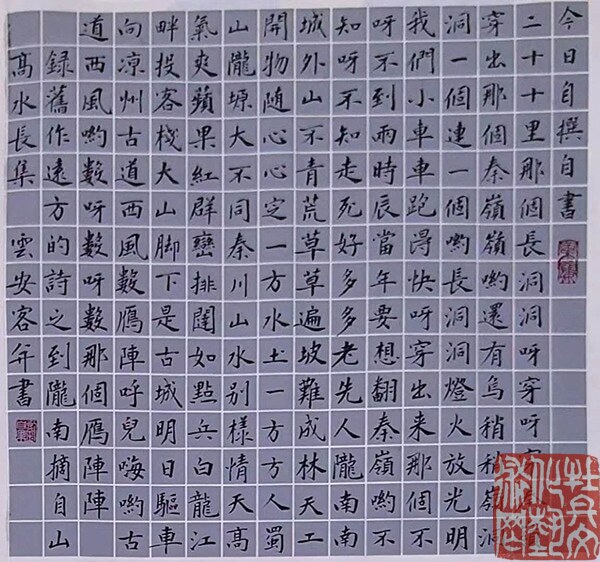 今日自撰自書
二十十里那個長洞洞呀穿呀
穿出那個秦嶺嶺喲還有烏稍稍嶺洞
洞一個連一個喲長洞洞燈火放光明
我們小車車跑得快呀穿出來那個不
呀不到雨時辰當年要想翻秦嶺喲不
知呀不知走死好多多老先人隴南南
城外山不青荒草草遍坡難成林天工
開物隨心心定一方水土一方方人蜀
山隴塬大不同秦川山水別樣情天高
氣爽蘋果紅群巒排闥如點兵白龍江
畔投客棧大山腳下是古城明日驅車
向涼州古道西風數鴈陣呼兒嗨喲古
道西風喲數呀數呀數那個鴈陣陣
錄舊作遠方的詩之到隴南摘自山
高水長集 雲安客年書